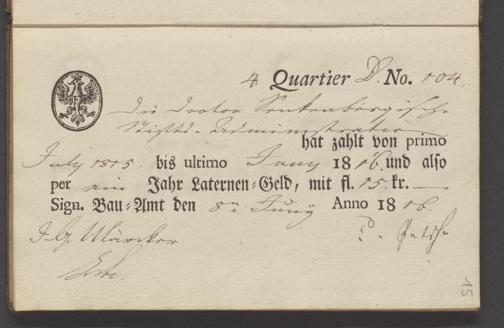 4 Quartier D. No. 104.
Die Doctor Senkenbergische
Stifts-Administration
hat zahlt von primo
July 1815. bis ultimo Juny 1816 und also
per ein Jahr Laternen-Geld, mit fl. 15. kr. —
Sign. Bau-Amt den Juny Anno 1816.
15